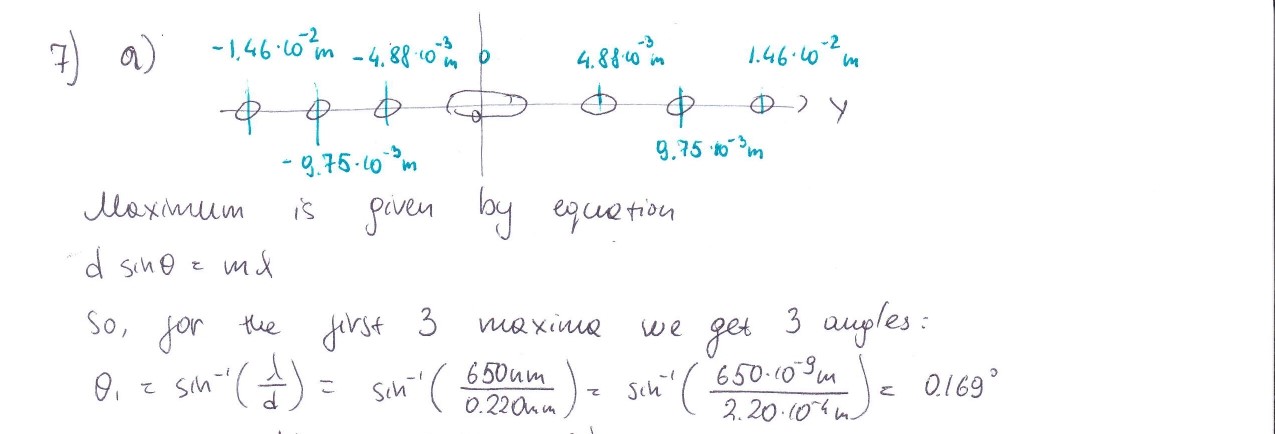 7) a) -1.46·10⁻²m -4.88·10⁻³m 0 4.88·10⁻³m 1.46·10⁻²m
0 y
-9.75·10⁻³m 9.75·10⁻³m
Maximum is given by equation
d sinθ = mλ
So, for the first 3 maxima we get 3 angles:
θ₁ = sin⁻¹(λ/d) = sin⁻¹(650nm/0.220mm) = sin⁻¹(650·10⁻⁹m/2.20·10⁻⁴m) = 0.169°